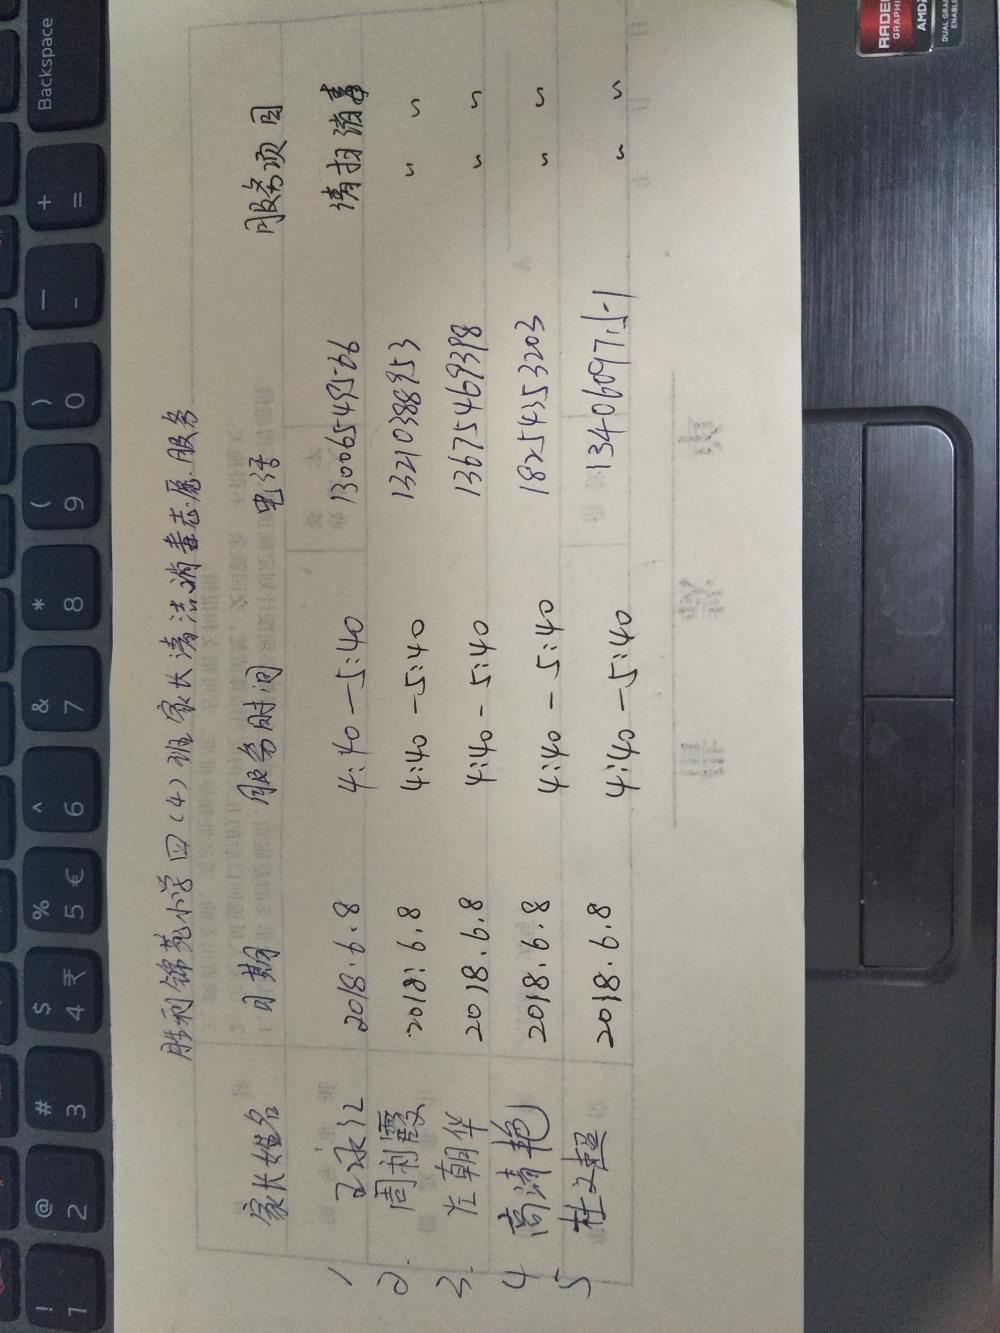 胜利锦苑小学四(4)班家长清洁消毒志愿服务
家长姓名 日期 服务时间 电话 服务项目
1 2018.6.8 4:40-5:40 13006549566 清扫消毒
2. 周利霞 2018.6.8 4:40-5:40 13210388953 〃 〃
3. 左朝华 2018.6.8 4:40-5:40 13675469398 〃 〃
4 高清艳 2018.6.8 4:40-5:40 18254353203 〃 〃
5 杜文超 2018.6.8 4:40-5:40 13406097551 〃 〃
Backspace
+ =
_ -
) 0
( 9
* 8
& 7
^ 6
% 5 €
$ 4 ₹
# 3
@ 2
! 1
RADEON
GRAPHICS
AMD
DUAL GRAPHICS
ENABLED